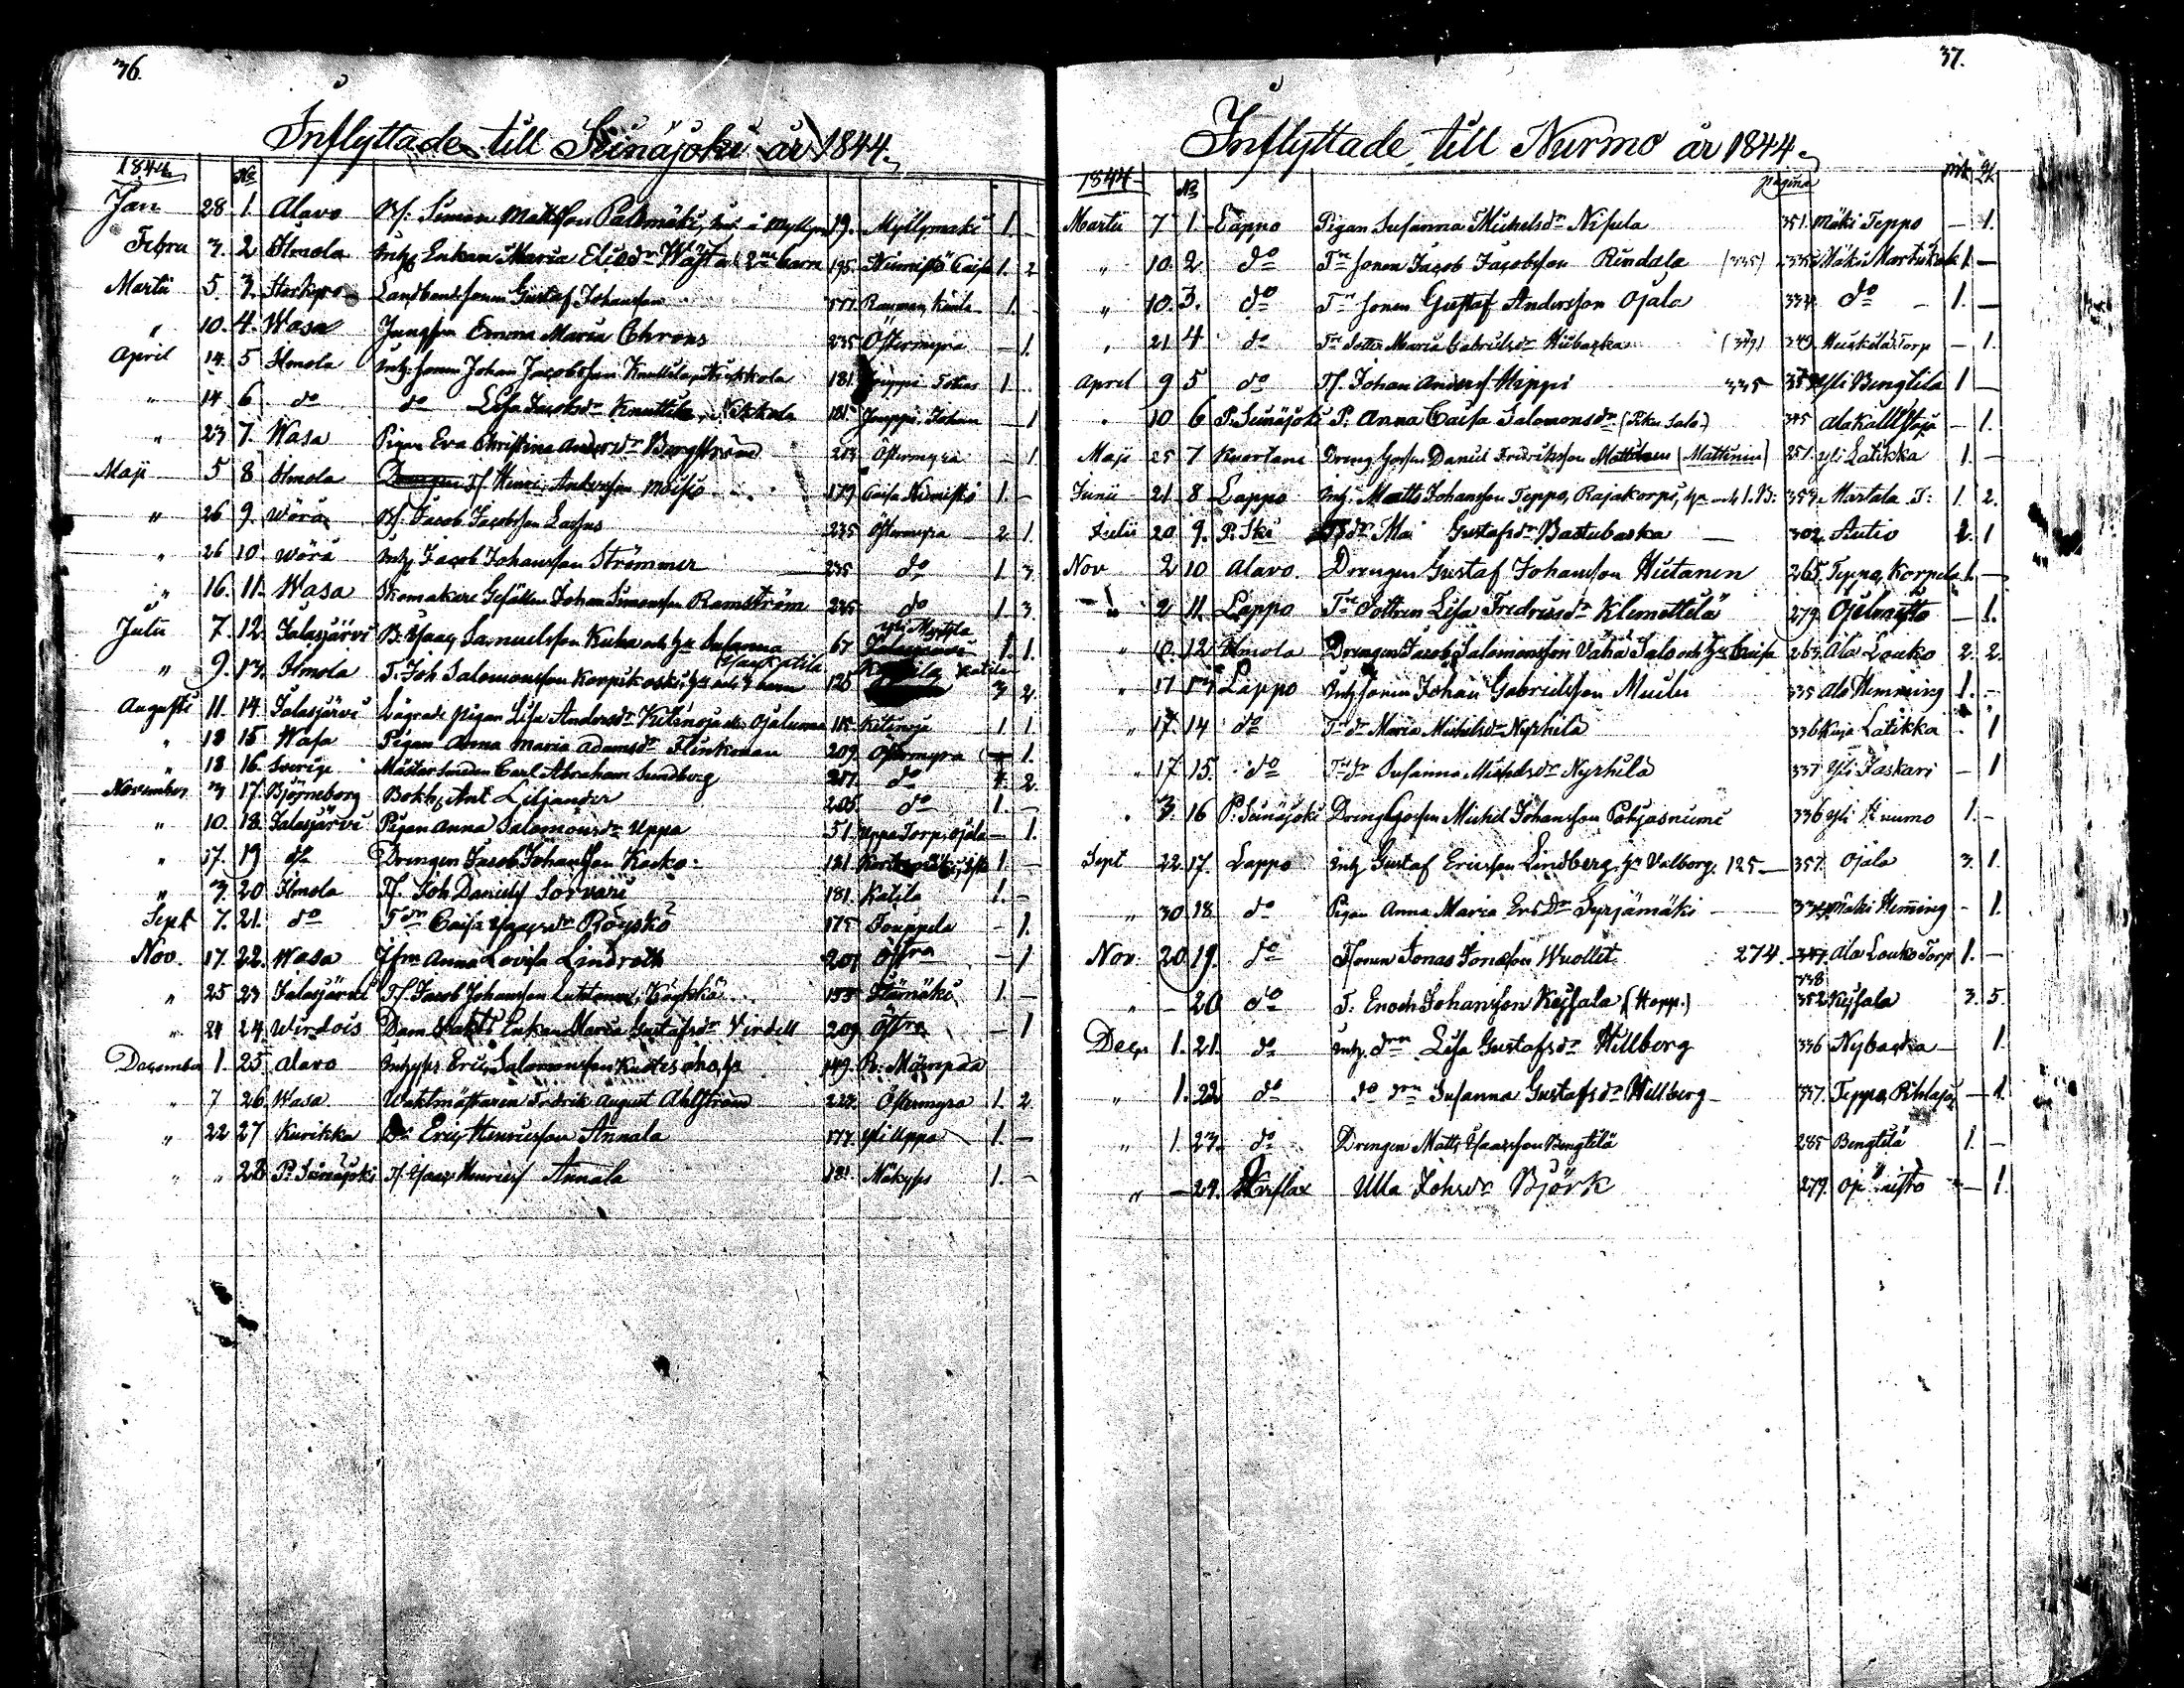 36.
Inflyttade till Seinäjoki år 1844.
1844 No
Jan 28 1. Alavo Bf. Simon Mattsson Palomäki 19. Myllymäki 1. -
Febru 3. 2 Ilmola Inhs Enkan Maria Eliedr Wasta 2ne barn 195 Niemistö Caisa 1. 2
Martii 5. 3. Storkyro Landbondsonen Gustaf Johansson 177. 1. -
" 10. 4. Wasa Jungfrun Emma Maria Ehrens 235 Östermyra - 1.
April 14. 5 Ilmola Inhs sonen Johan Jacobsson Knuttila, Nikkola 181. Jouppi 1.
" 14. 6 do do Lisa Jacobsdr Knuttila, Nikkola 181 Jouppi Johan - 1
" 23 7. Wasa Pigan Eva Christina Andersdr Bergström 213 Östermyra - 1.
Maji 5 8 Ilmola Tf Henric Andersson Moisio 179 Caisa Niemistö 1. -
" 26 9. Wörå Bf. Jacob Jacobsson Lassus 235 Östermyra 2 1.
" 26 10. Wörå Inhs Jacob Johansson Strömmer 235 do 1 3
" 16. 11. Wasa Skomakare Gesällen Johan Simonsson Ramström 235 do 1 3.
Julii 7. 12. Jalasjärvi B. Isaac Samuelsson Kuha och Ha Susanna 67 1. 1.
" 9. 13. Ilmola T. Joh Salomonsson Korpikoski, Ha och 3 barn 125 Katila 3 2.
Augusti 11 14. Jalasjärvi Lägrade pigan Lisa Andersdr Kitinoja 115 Kitinoja 1 1
" 18 15 Wasa Pigan Anna Maria Adamsdr Flinkman 209. Östermyra 1.
" 18. 16. Sverige Mästersmeden Carl Abraham Sundberg 217 do 1. 2.
November 3 17. Björneborg Bokh. Ant Liljander 205 do 1. -
" 10. 18 Jalasjärvi Pigan Anna Salomonsdr Uppa 51. Uppa Torp, Ojala - 1.
" 17. 19 do Drengen Jacob Johansson Kosko 181 1. -
" 3. 20 Ilmola Tf. Joh Danielss Sorvari 181. Katila 1. -
Sept 7. 21. do Tdr Caisa Isaacsdr Röyskö 175 Jouppila - 1.
Nov. 17. 22. Wasa Jfrn Anna Lovisa Lindroth 201 Östra - 1
" 25 23 Jalasjärvi Tf. Jacob Johansson Luhtanen, Köykkä 155 1. -
" 24 24. Wirdois Enkan Maria Gustafsdr Virdell 209 Östra - 1
December 1. 25 Alavo Inhyses Eric Salomonsson 149.
" 7 26. Wasa Waktmästaren Fredrik August Ahlström 223. Östermyra 1. 2
" 22 27 Kurikka Dr Eric Henricsson Annala 177. Yli Uppa 1. -
" " 28 P: Seinäjoki Tf. Isaac Henricss Annala 181. 1. -
37.
Inflyttade till Nurmo år 1844.
1844 No pagina mk qk
Martii 7 1. Lappo Pigan Susanna Michelsdr Nisula 351. Mäki Teppo - 1.
" 10. 2 do Tre sonen Jacob Jacobsson Rindala (335) Mäki Martikkala 1. -
" 10. 3. do Tre sonen Gustaf Andersson Ojala 334. do - 1. -
" 21 4 do Tre Dotter Maria Gabrielsdr Hiibacka (349) 349. Heikkilä Torp - 1.
April 9 5 do Tf. Johan Anderss Hippi 335 Yli Bengtila 1 -
" 10 6 P: Seinäjoki P: Anna Caisa Salomonsdr (Piku Salo) 345 - 1.
Maji 25 7 Kuortane Dreng Gossen Daniel Fredriksson (Mattinen) 251 Yli Latikka 1. -
Junii 21. 8. Lappo Inhs: Matts Johansson Teppo, Rajakorpi, Ha och 1. B: 353. Martala T: 1. 2.
Julii 20 9. P: Ski Tdr Mai Gustafsdr Bastubacka - 302 Autio 1
Nov 2 10 Alavo. Drengen Gustaf Johansson Hietanen 265. Teppo, Korpela 1. -
2 11. Lappo Tre Dottren Lisa Fredricsdr Klemettilä 279. - 1.
" 12 Ilmola Drengen Jacob Salomonsson Vähä Salo och Ha Caisa 263. Ala Louko 2. 2.
" 17 13 Lappo Inhs sonen Johan Gabrielsson 335 Ala Hemming 1. -
" 17. 14 do Tre dr Maria Michelsdr Nyrhilä 336 Latikka - 1
" 17 15. do Tre dr Susanna Michelsdr Nyrhilä 337 Yli Jaskari - 1
" 3. 16 P: Seinäjoki Drenggossen Michel Johansson Pohjasniemi 336 1. -
Sept 22. 17. Lappo Inhs Gustaf Ericsson Lindberg, Ha Valborg. 125 357. Ojala 3. 1.
" 30. 18. do Pigan Anna Maria Ersdr Syrjämäki Mäki Hemming - 1.
Nov. 20. 19. do Tsonen Jonas Jonasson Wuollet 274. Ala Louko Torp 1. -
" - 20 do T. Enoch Johansson Keisala (Hopp.) 352 Keisala 3. 5.
Decr 1. 21. do Inhs. drn Lisa Gustafsdr Hillborg 336 Nybacka - 1.
" 1. 22 do do drn Susanna Gustafsdr Hillberg 337. Teppo, - 1.
" 1. 23. do Drengen Matts Isaacsson Bengtilä 285 Bengtilä 1. -
" - 24. Ulla Johsdr Björk 279. - 1.